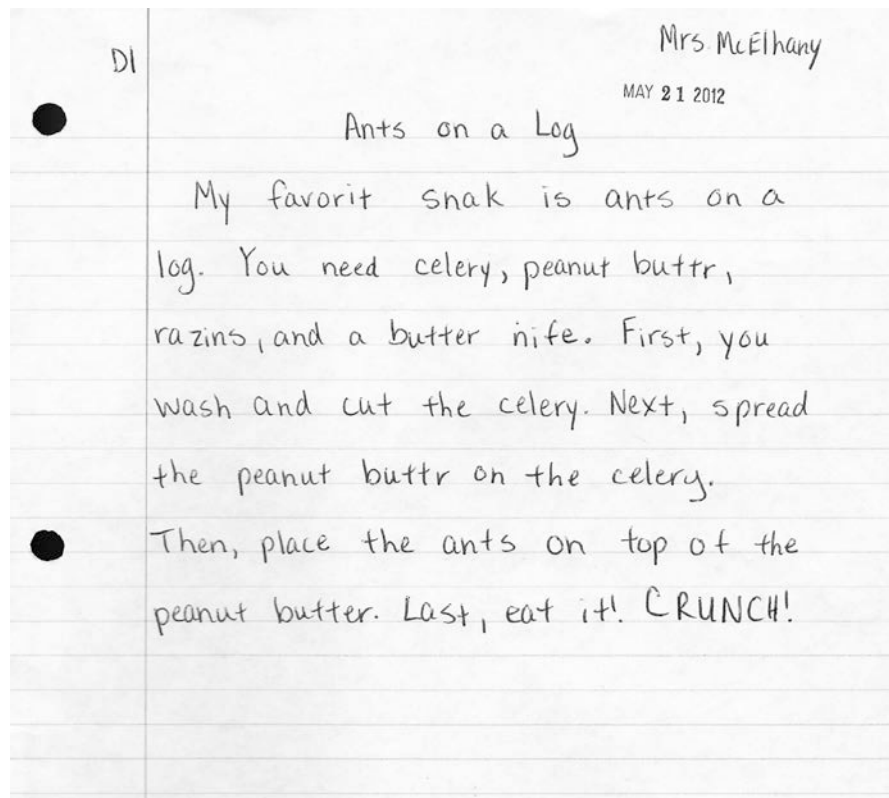 Mrs. McElhany
D1
MAY 21 2012
Ants on a Log
My favorit snak is ants on a
log. You need celery, peanut buttr,
razins, and a butter nife. First, you
wash and cut the celery. Next, spread
the peanut buttr on the celery.
Then, place the ants on top of the
peanut butter. Last, eat it! CRUNCH!